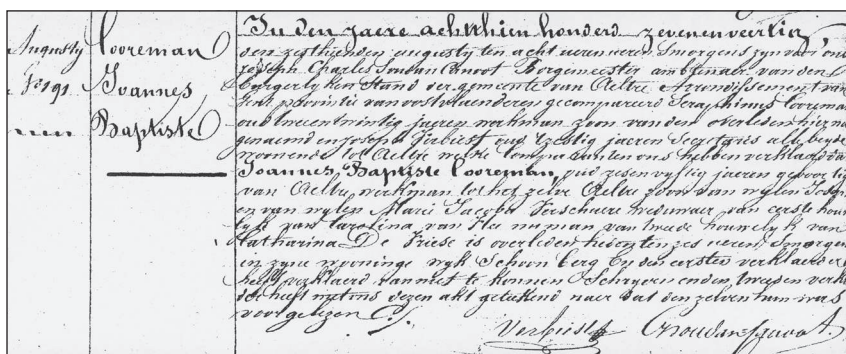 Augusty
N° 191
Cooreman
Joannes
Baptiste
In den jaere achthien honderd zevenenveertig
den zesthienden augusty ten acht ueren smorgens zyn voor ons
Joseph Charles Borgemeester ambtenaer van den
borgerlyken Stand der gemeente van Aeltre Arrondissement van
Gent provintie van oostvlaenderen gecompareerd Seraphinus Cooreman
oud jaeren werkman zoon van den overleden hierna
genaemd en Joseph Verbiest oud zestig jaeren Secretaris alle beyde
woonende tot Aeltre welke comparanten ons hebben verklaerd dat
Joannes Baptiste Cooreman, oud zesenvyftig jaeren geboortig
van Aeltre, werkman tot het zelve Aeltre zoon van wylen Joseph
en van wylen Marie Jacoba Verschuere weduwaer van eerste houw
lyk van Carolina van Hee en man van tweede houwelyk van
Catharina De Vriese is overleden heden ten zes ueren smorgens
in zyne wooninge wyk Schoonberg En den eersten verklaerder
heeft verklaerd van niet te konnen Schryven en den tweeden verkl
der heeft met ons dezen akt geteekend naer dat den zelven hun was
voorgelezen
Verbiest